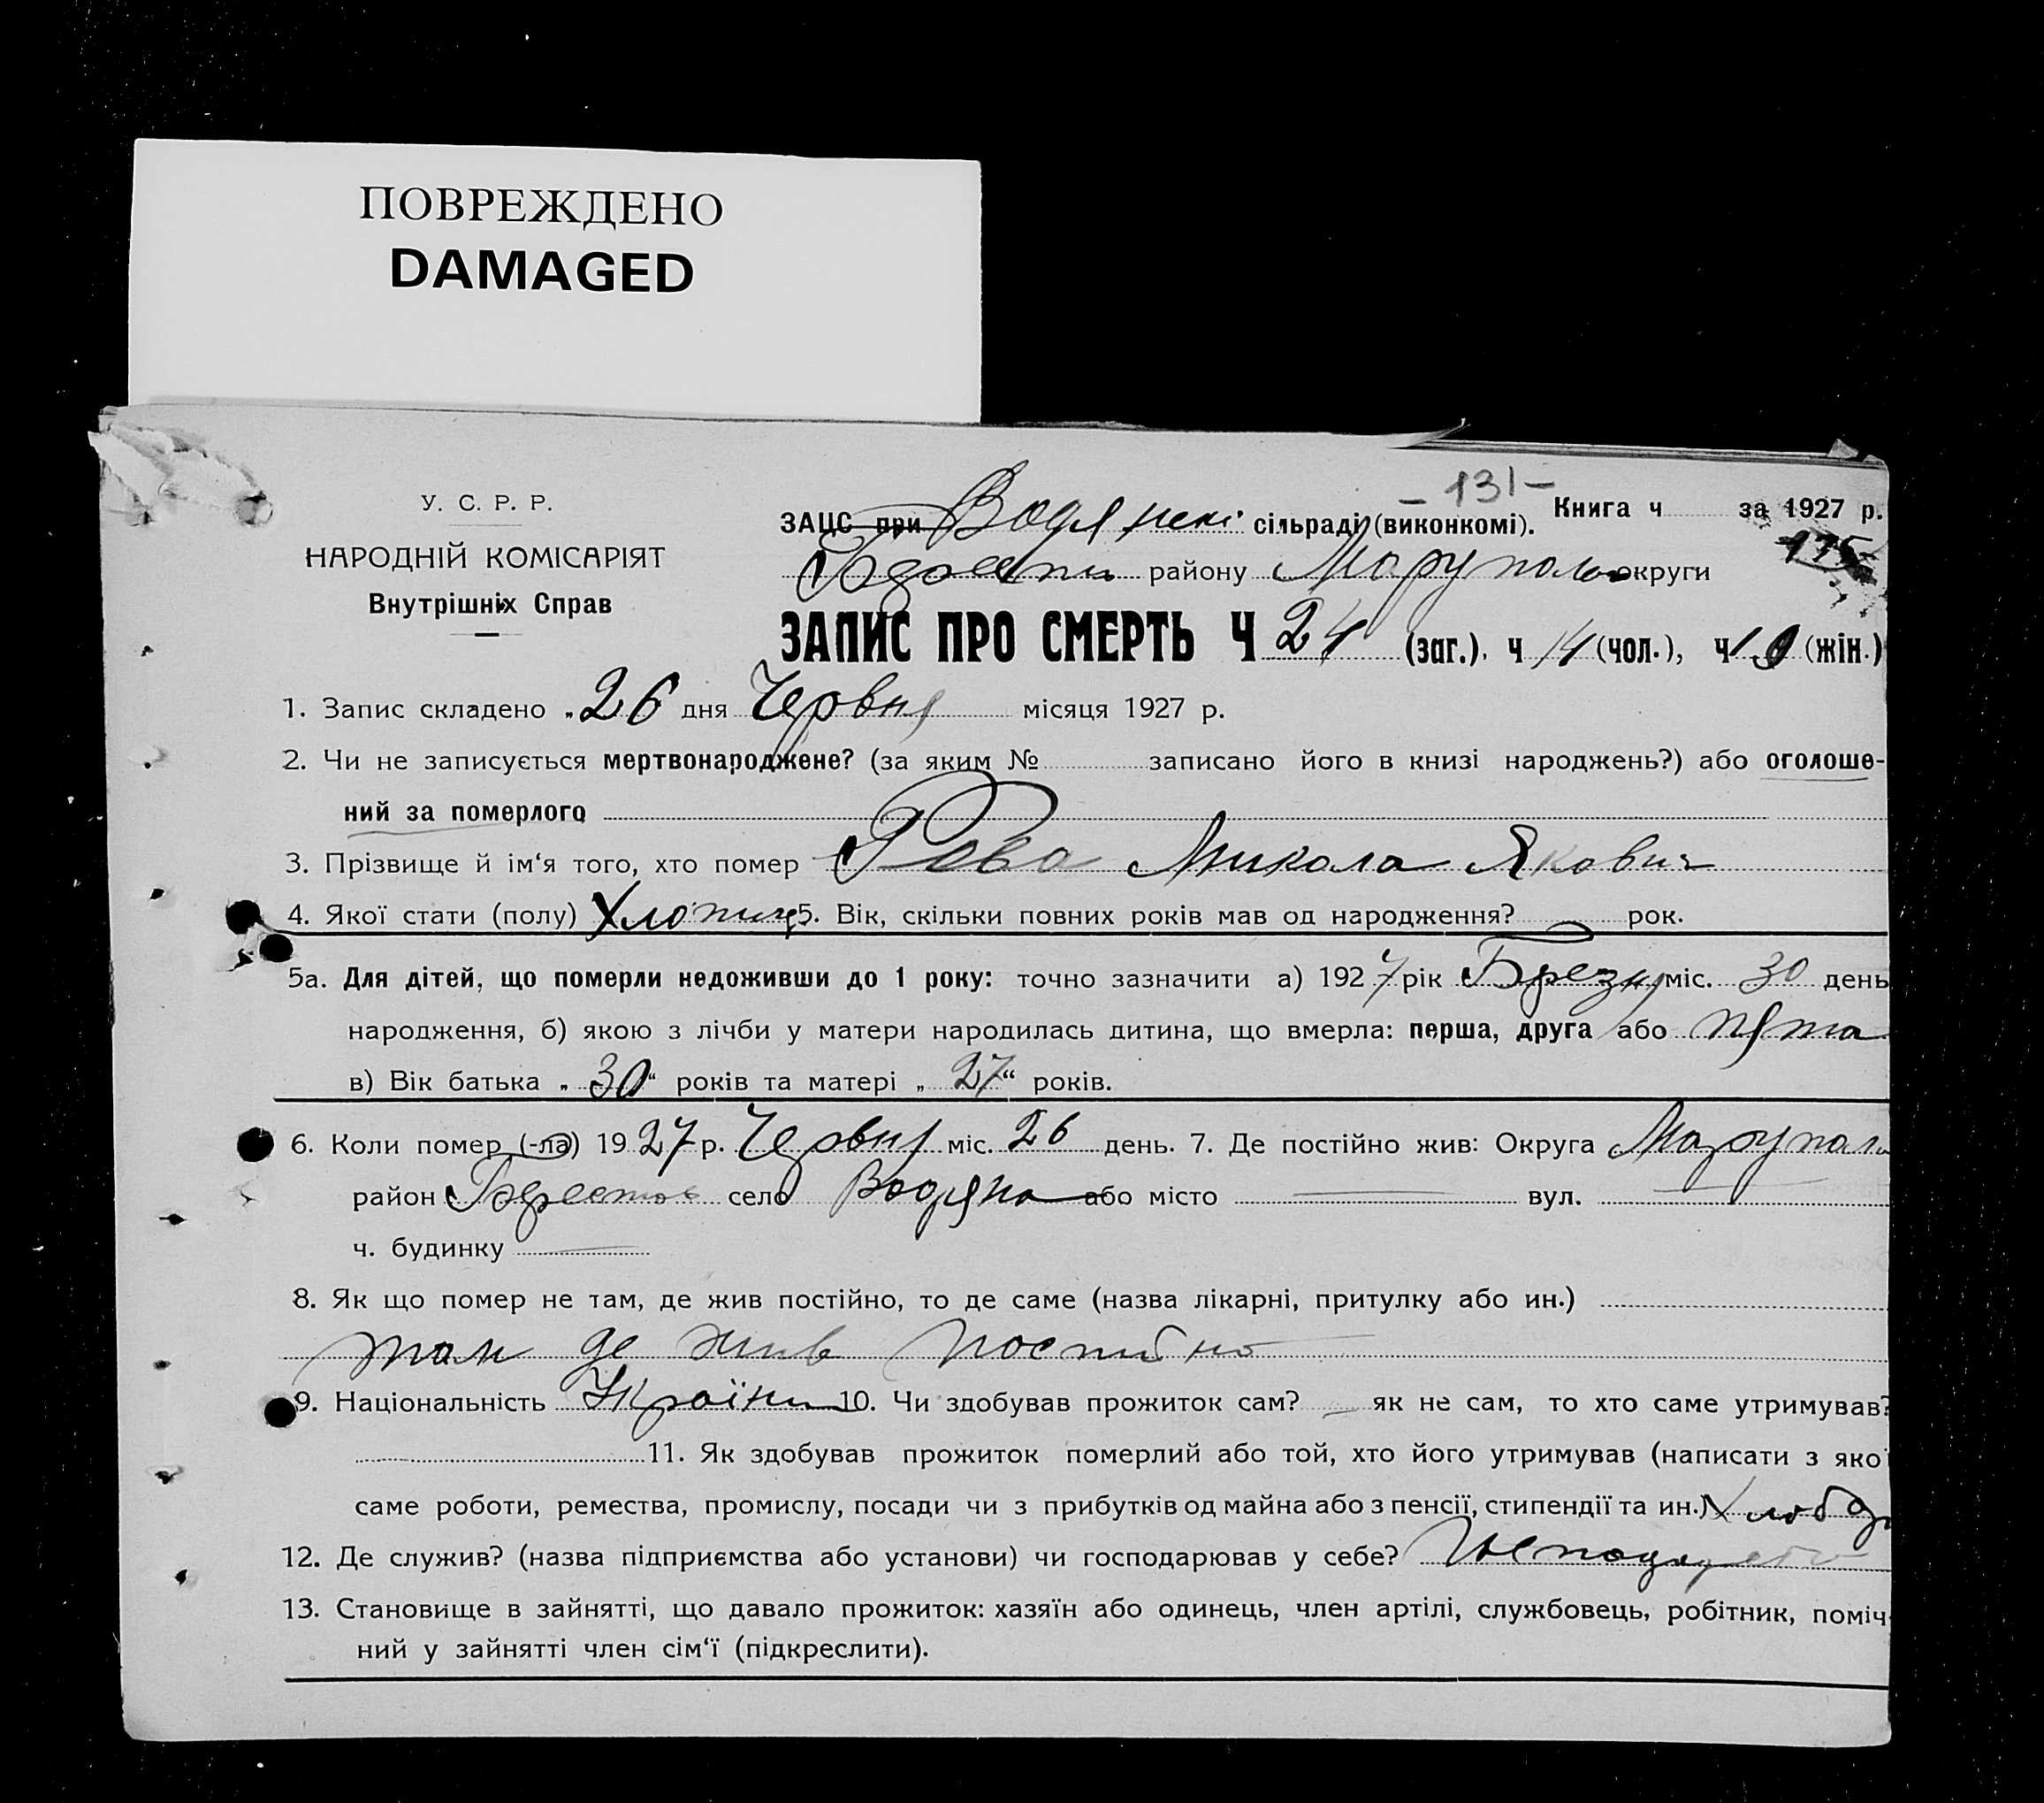 ПОВРЕЖДЕНО
DAMAGED
- 131 -
У. С. Р. Р.
НАРОДНІЙ КОМІСАРІЯТ
Внутрішніх Справ
ЗАЦС при Водянскі сільраді (виконкомі).
Книга ч за 1927 р.
району Маруполь округи
ЗАПИС ПРО СМЕРТЬ Ч 24 (заг.). ч 14 (чол.), ч 10 (жін.)
1. Запис складено „ 26 дня Червня місяця 1927 р.
2. Чи не записується мертвонароджене? (за яким № записано його в книзі народжень?) або оголоше-
ний за померлого
3. Прізвище й ім‘я того, хто помер Рева Микола Якович
4. Якої стати (полу) Хлопиць 5. Вік, скільки повних років мав од народження? рок.
5а. Для дітей, що померли недоживши до 1 року: точно зазначити а) 1927 рік Березня міс. 30 день
народження, б) якою з лічби у матери народилась дитина, що вмерла: перша, друга або пята
в) Вік батька „ 30 “ років та матері „ 27 “ років.
6. Коли помер (-ла) 1927 р. Червня міс. 26 день. 7. Де постійно жив: Округа Маруполь
район Берестов село Водяна або місто вул.
ч. будинку
8. Як що помер не там, де жив постійно, то де саме (назва лікарні, притулку або ин.)
там де жив постійно
9. Національність Українець 10. Чи здобував прожиток сам? як не сам, то хто саме утримував?
11. Як здобував прожиток померлий або той, хто його утримував (написати з якої
саме роботи, ремества, промислу, посади чи з прибутків од майна або з пенсії, стипендії та ин.)
12. Де служив? (назва підприємства або установи) чи господарював у себе?
13. Становище в зайнятті, що давало прожиток: хазяїн або одинець, член артілі, службовець, робітник, поміч-
ний у зайнятті член сім‘ї (підкреслити).